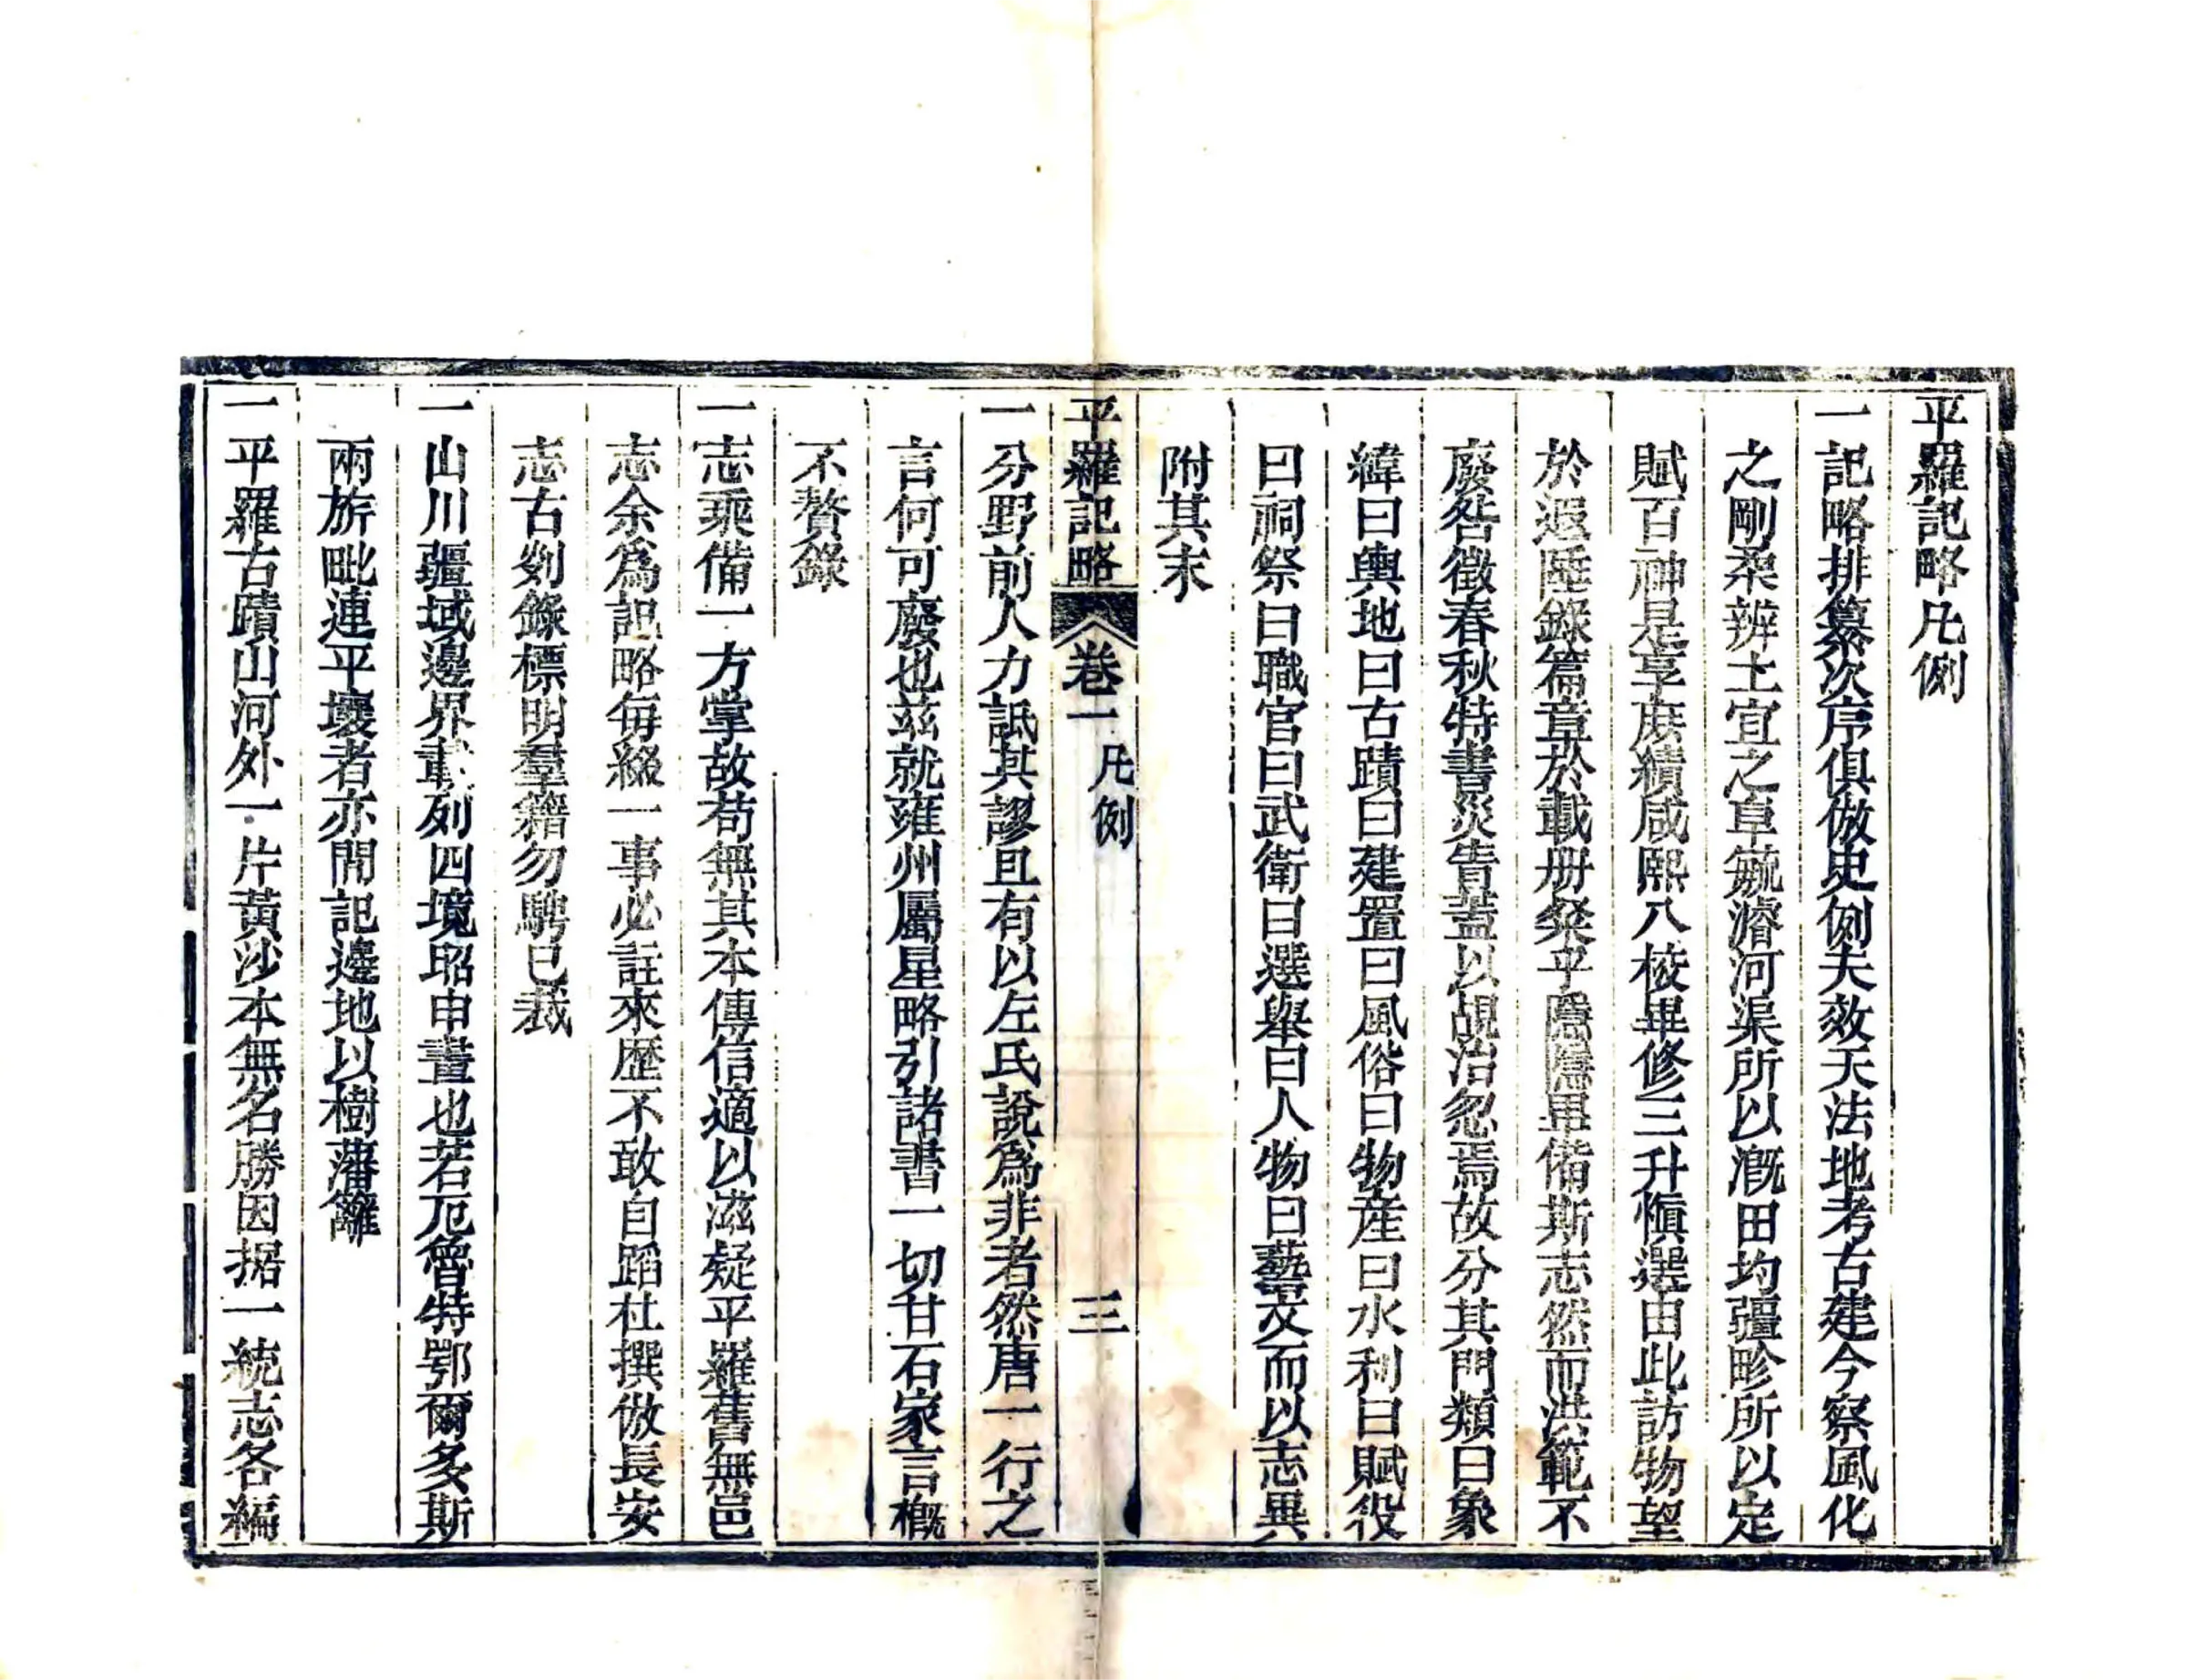 平羅記略凡例
一記略排纂次序俱倣史例夫效天法地考古建今察風化
之剛柔辨土宜之阜毓濬河渠所以漑田均疆畛所以定
賦百神是享庶績咸熙八棱畢修三升慎選由此訪物望
於遐陬錄篇章於載册粲乎隱隱畢備斯志然而洪範不
廢咎徵春秋特書災眚蓋以覘治忽焉故分其門類曰象
緯曰輿地曰古蹟曰建置曰風俗曰物産曰水利曰賦役
曰祠祭曰職官曰武衛曰選舉曰人物曰藝文而以志異
附其末
平羅記略 卷一 凡例 三
一分野前人力詆其謬且有以左氏說爲非者然唐一行之
言何可廢也兹就雍州屬星略引諸書一切甘石家言槪
不贅錄
一志乘備一方掌故苟無其本傳信適以滋疑平羅舊無邑
志余爲記略每綴一事必註來歷不敢自蹈杜撰倣長安
志古剡錄標明羣籍勿騁已裁
一山川疆域邊界載列四境昭申畫也若厄魯特鄂爾多斯
兩旂毗連平壤者亦間記邊地以樹藩籬
一平羅古蹟山河外一片黃沙本無名勝因据一統志各編